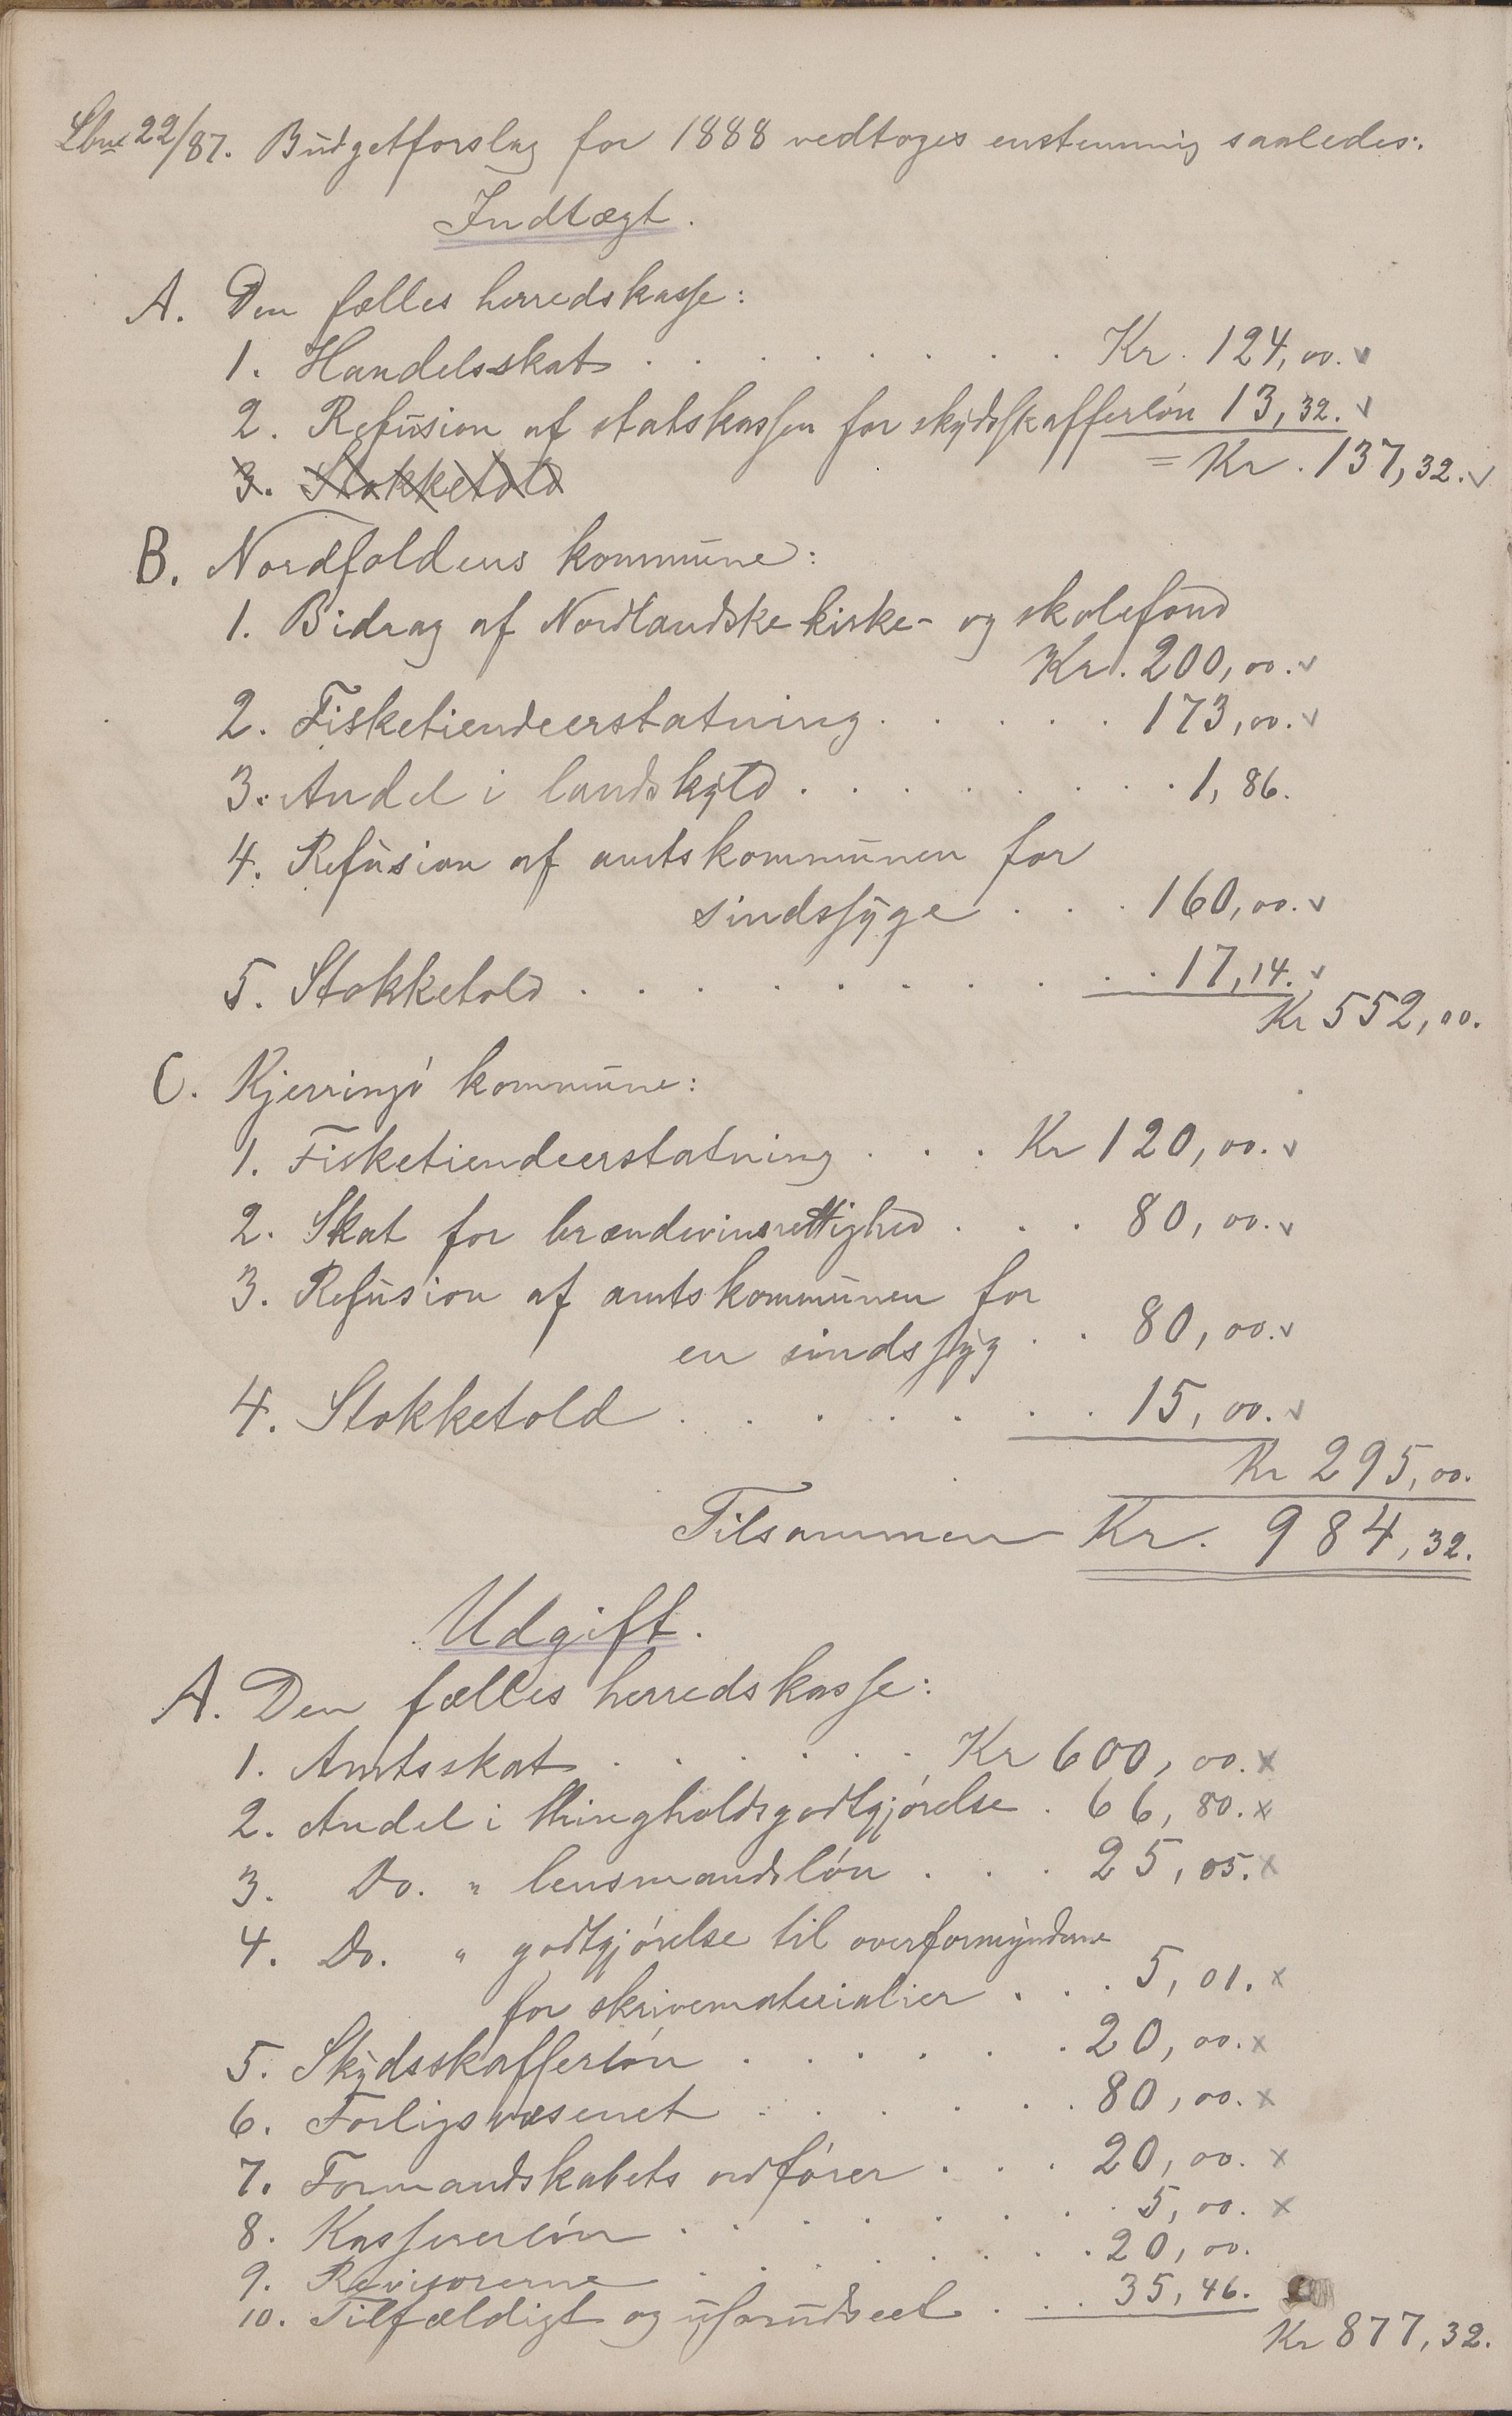 Lbnr 22/87. Budgetforslag for 1888 vedtoges enstemmig saaledes:
Indtægt.
A. Den fælles herredskasse:
1. Handelsskat . . . . . . . Kr. 124,00. v
2. Refusion af statskassen for skydsskafferløn 13,32. v
= Kr. 137,32. v
3. Stokketold
B. Nordfoldens kommune:
1. Bidrag af Nordlandske kirke- og skolefond
Kr. 200,00. v
2. Fisketiendeerstatning . . . . . 173,00. v
3. Andel i landskyld . . . . . . . 1,86.
4. Refusion af amtskommunen for
sindssyge . . . 160,00. v
5. Stokketold . . . . . . . . . 17,14. v
Kr 552,00.
C. Kjerringø kommune:
1. Fisketiendeerstatning . . . Kr 120,00. v
2. Skat for brændevinsrettighed . . . 80,00. v
3. Refusion af amtskommunen for
en sindssyg . . 80,00. v
4. Stokketold . . . . . . . 15,00. v
Kr 295,00.
Tilsammen Kr. 984,32.
Udgift.
A. Den fælles herredskasse:
1. Amtsskat . . . . . . Kr 600,00. x
2. Andel i thingholdsgodtgjørelse . 66,80. x
3. Do. " lensmandsløn . . . 25,05. x
4. Do. " godtgjørelse til overformynderne
for skrivematerialier . . . 5,01. x
5. Skydsskafferløn . . . . . . 20,00. x
6. Forligsvæsenet . . . . . . 80,00. x
7. Formandskabets ordfører . . . 20,00. x
8. Kassererløn . . . . . . . 5,00. x
9. Revisorerne . . . . . . . 20,00.
10. Tilfældigt og uforudseet . . . 35,46.
Kr 877,32.